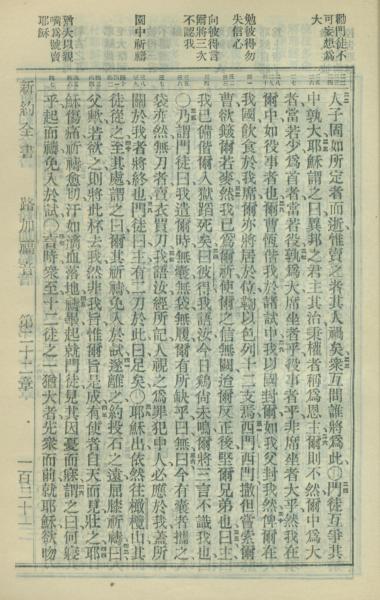 勸門徒不
可妄想為
大
勉彼得勿
失信心
向彼得言
爾將三次
不認我
園中祈禱
猶大以親
嘴為號賣
耶穌
人子固如所定者而逝惟賣之者其人禍矣衆互問誰將為此〇門徒互爭其
中孰大耶穌謂之曰異邦之君主其治秉權者稱為恩主爾則不然爾中為大
者當若少為首者當若役孰為大席坐者乎役事者乎非席坐者大乎然我在
爾中如役事者也爾曹恆偕我於諸試中我以國封爾如我父封我然俾爾在
我國飲食於我席爾亦將居於位鞫以色列十二支焉西門西門撒但嘗索爾
曹欲簸爾若麥然我已為爾祈使爾之信無闕迨爾反正後堅爾兄弟也曰主
我已備偕爾入獄蹈死矣曰彼得我語汝今日雞尚未鳴爾將三言不識我也
〇乃謂門徒曰我遣爾時無囊無袋無履爾有所缺乎曰無曰今有囊者攜之
袋亦然無刀者賣衣買刀我語汝經所記人視之為罪犯中人必應於我蓋所
關於我者將終也門徒曰主有二刀於此曰足矣〇耶穌出依然往橄欖山其
徒從之至其處謂之曰爾其祈禱免入於試遂離之約投石之遠屈膝祈禱曰
父歟若欲之則將此杯去我然非我旨惟爾旨是成有使者自天而見壯之耶
穌傷痛祈禱愈切汗如漬血落地禱畢起就門徒見其因憂而寐謂之曰何寢
乎起而禱免入於試〇言時衆至十二徒之一猶大者先衆而前就耶穌欲吻
新約全書 路加福音 第二十二章 一百二十二